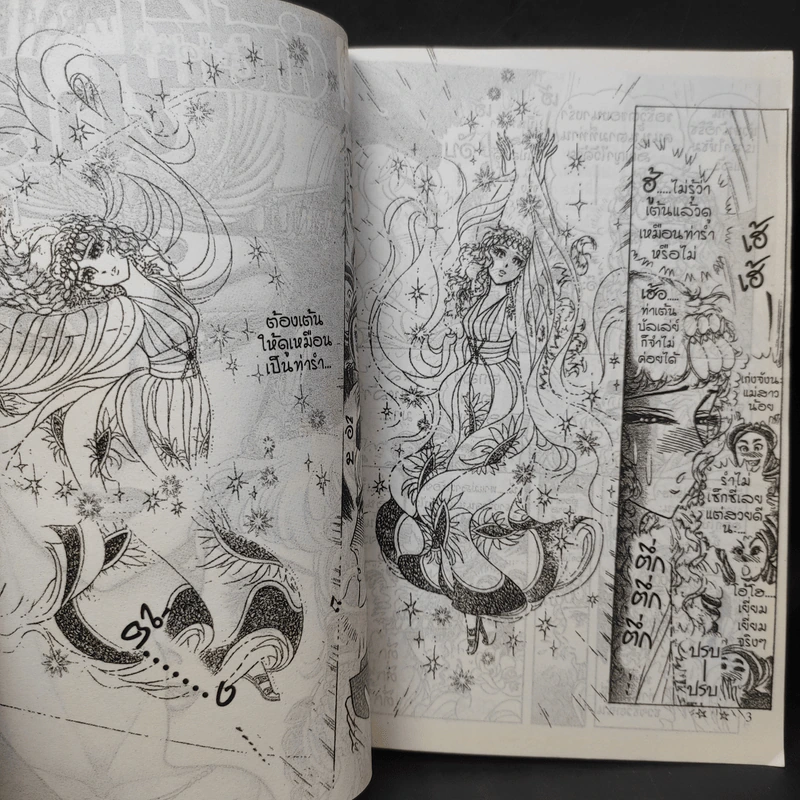 ต้องเต้น
ให้ดูเหมือน
เป็นท่ารำ...
ฮู้.....ไม่รู้ว่า
เต้นแล้วดู
เหมือนท่ารำ
หรือไม่
เฮ้อ....
ท่าเต้น
บัลเล่ย์
ก็จำไม่
ค่อยได้
เฮ้
เฮ้
เก่งจังนะ
แม่สาว
น้อย
รำไม่
เซ็กซี่เลย
แต่สวยดี
นะ...
โอ้โฮ...
เยี่ยม
เยี่ยม
จริงๆ
ปรบ
ปรบ
3